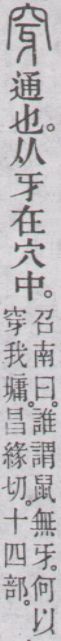 穿通也。从牙在穴中。
召南曰。誰謂鼠無牙。何以
穿我墉。昌緣切。十四部。